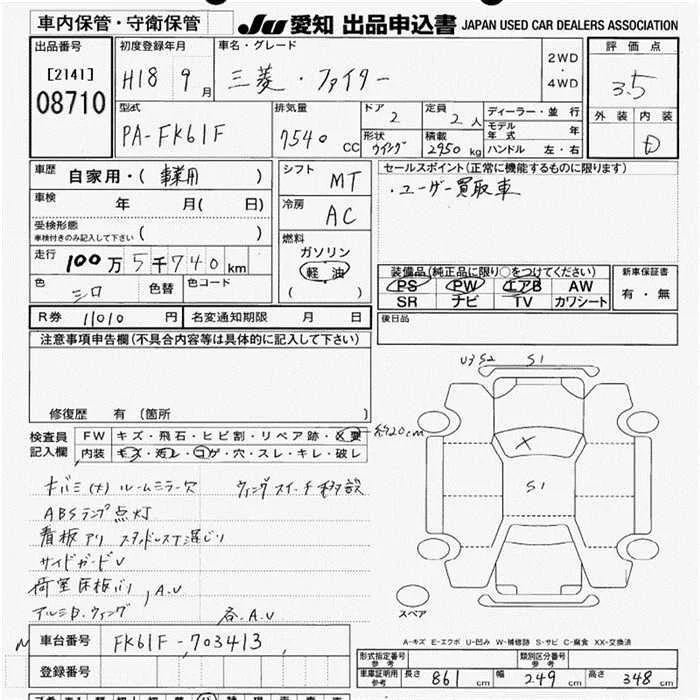 車内保管・守衛保管 JU 愛知 出品申込書 JAPAN USED CAR DEALERS ASSOCIATION
出品番号 初度登録年月 車名・グレード 評価点
[2141] H18 9月 三菱・ファイター 2WD・4WD 3.5
08710
型式 排気量 ドア 2 定員 2人 ディーラー・並行 外装 内装
PA-FK61F 7540 CC 形状 ウイング 積載 2950 kg モデル年式 年 D
ハンドル 左・右
車歴 自家用・(事業用) シフト MT セールスポイント(正常に機能するものに限ります)
車検 年 月( 日) 冷房 AC ・ユーザー買取車
受検形態
車検付きのみ記入して下さい ( )
燃料
ガソリン
軽油
( )
走行 100万5千740km
色 シロ 色替 色コード
装備品(純正品に限り○をつけてください) 新車保証書
PS PW エアB AW 有・無
SR ナビ TV カワシート
R券 11010 円 名変通知期限 月 日 後日品
注意事項申告欄(不具合内容等は具体的に記入して下さい)
修復歴 有(箇所 )
U3 S2 S1
検査員記入欄 FW キズ・飛石・ヒビ割・リペア跡・X要 約20cm
内装 キズ・汚レ・コゲ・穴・スレ・キレ・破レ
X
S1
キバミ(大) ルームミラー欠 ウィングスイッチ移設
ABSランプ点灯
看板アリ スタッドレスT混じり
サイドガードU
荷室床板バリ
アルミB.ウィング , A.U
各.A.U
スペア
A-キズ E-エクボ U-凹み W-補修跡 S-サビ C-腐食 XX-交換済
車台番号 FK61F-703413
登録番号
形式指定番号 参考 類別区分番号 参考
車庫証明用 参考 長さ 861 cm 幅 249 cm 高さ 348 cm